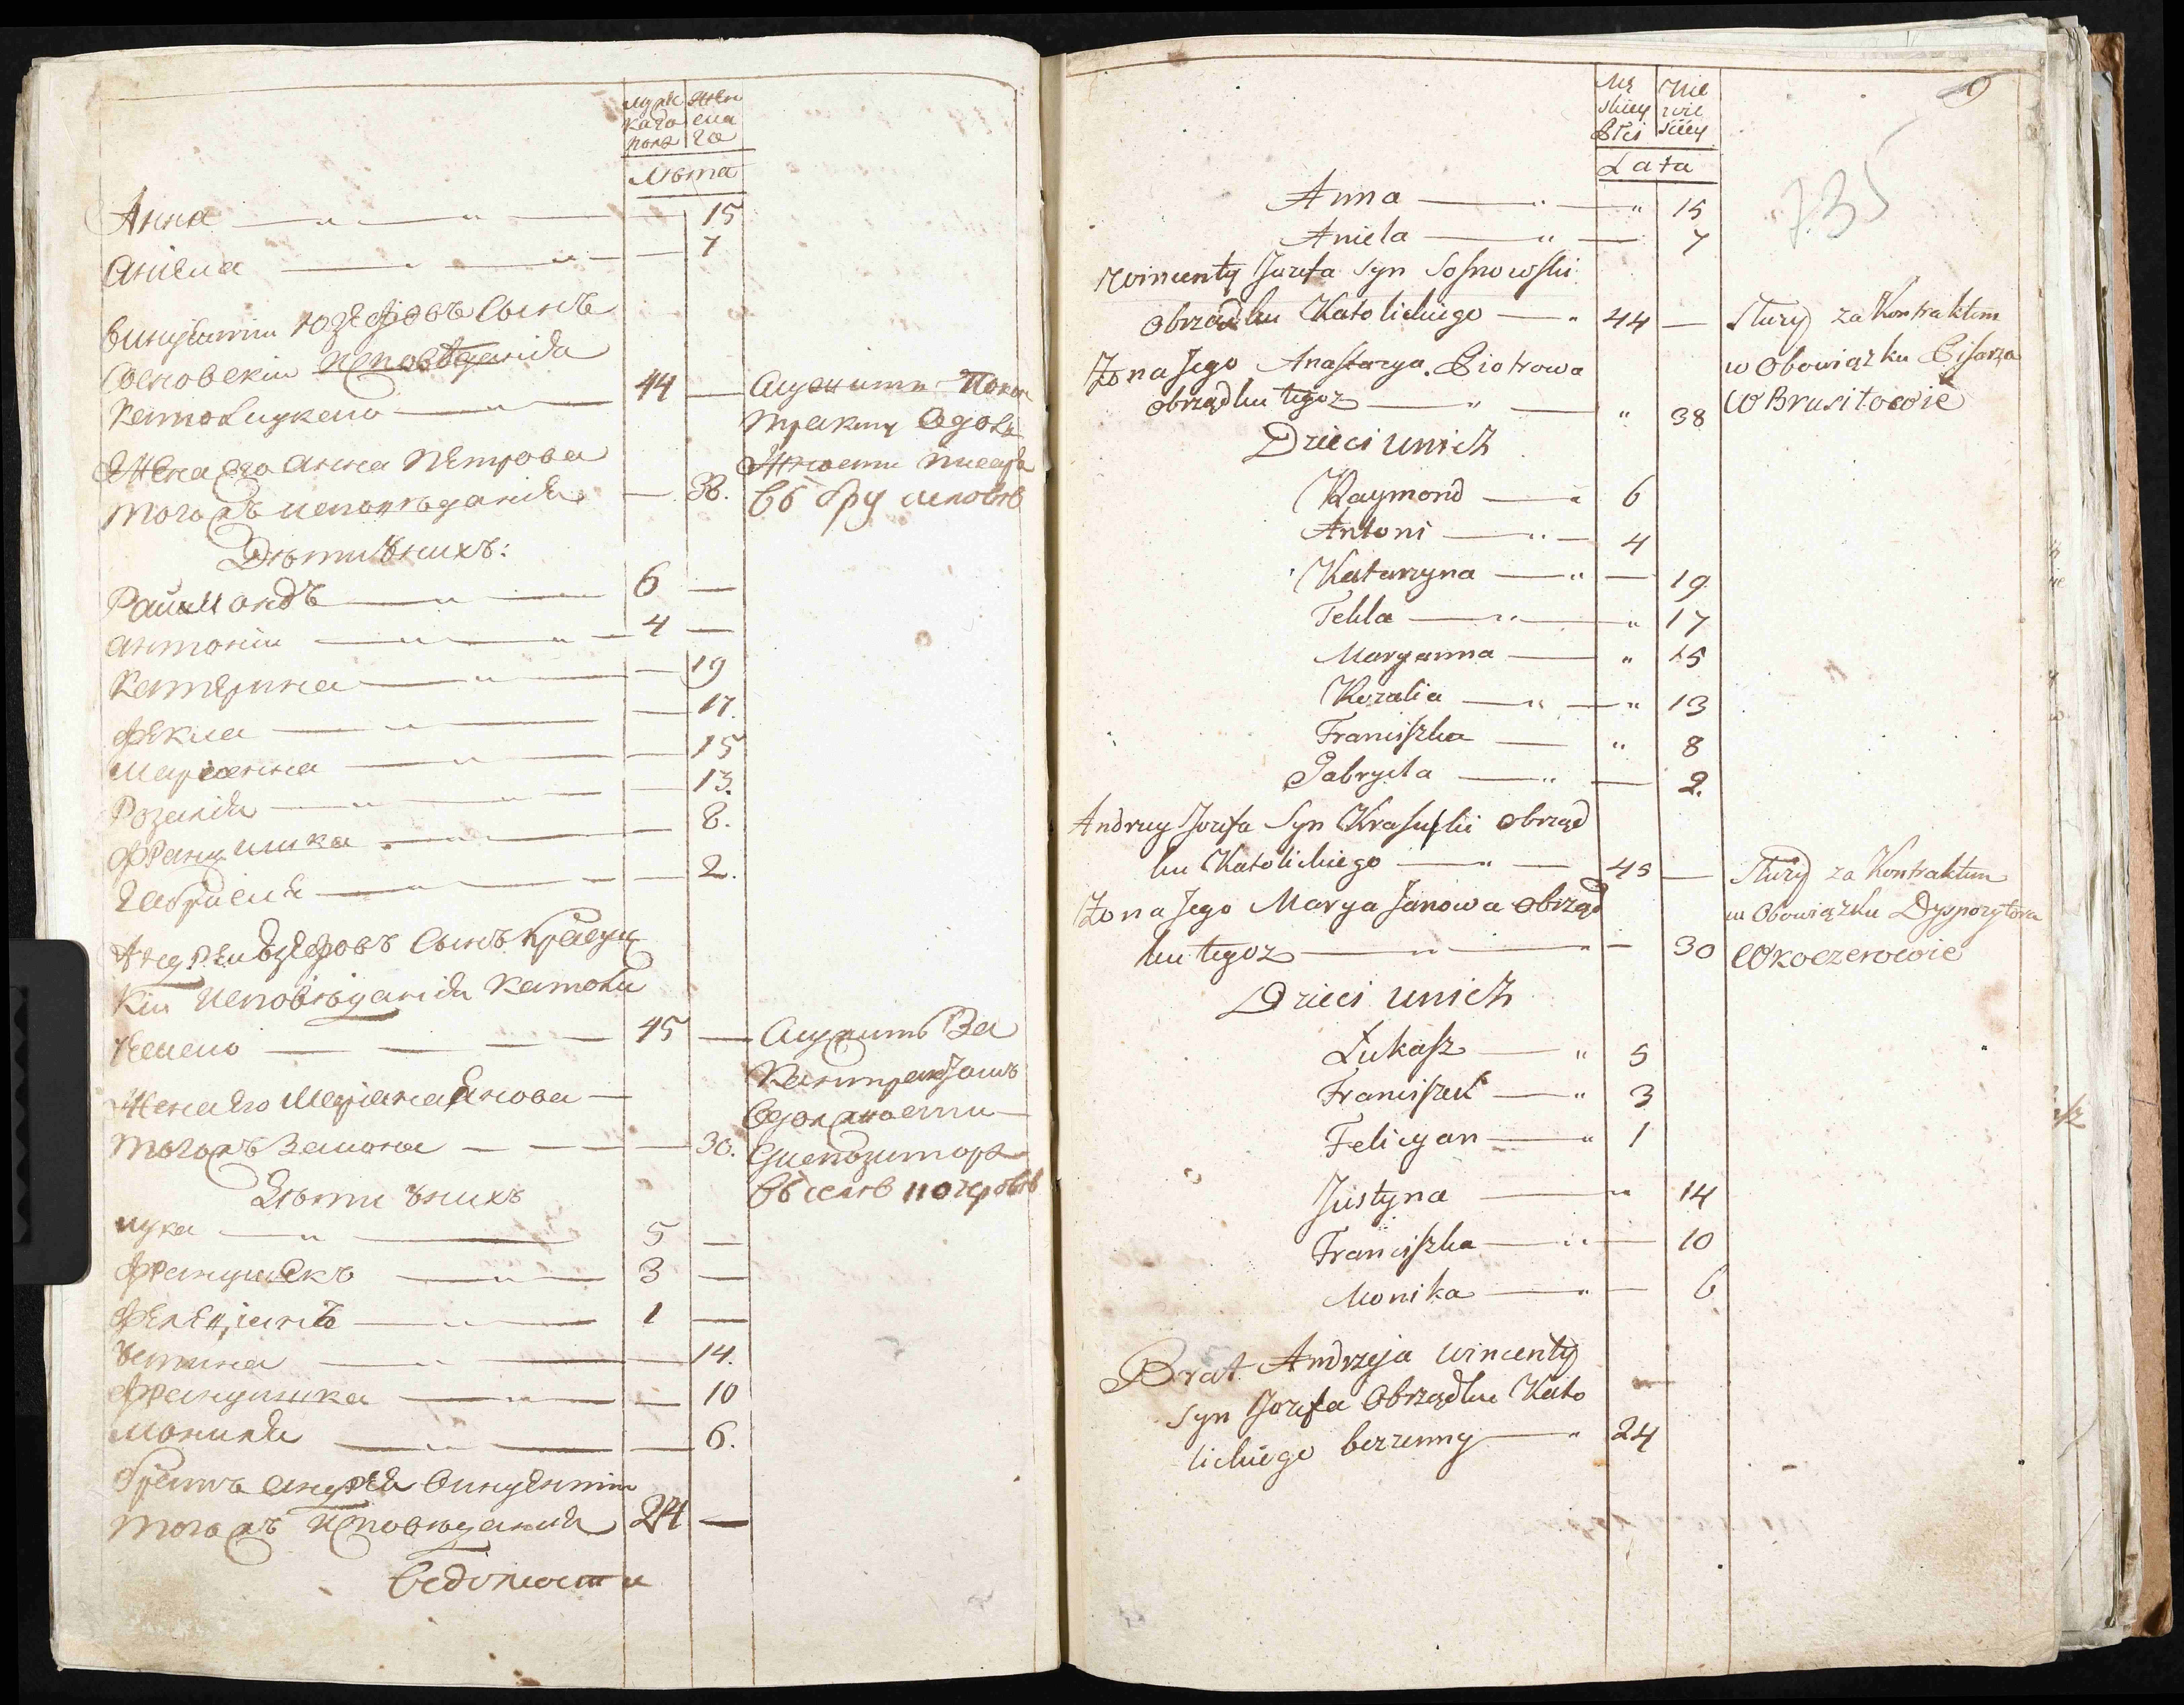 мужс жен
каго ска
пола го
Лѣта
Анна — " — " — 15
Анела — " — " — 7
Винцентий Юзефовъ Сынъ
Сосновский исповѣданія
Католицкаго — " — 44 —
Служитъ По кон
тракту в дол
жности писаря
въ Брусиловѣ
Жена его Анна Петрова
тогожъ исповѣданія — 38.
Дѣти ў нихъ:
Раймондъ — " — 6 —
Антоній — " — " — 4 —
Катерина — " — 19
Фекла — " — 17.
Маріанна — " — 15
Розалія — " — 13.
Францишка — " — 8.
Габріеля — " — 2.
Андрей Юзефовъ Сынъ Красус
кій Исповѣданія Католи
ческаго — — — 45 —
Служитъ За
Контрактомъ
в должности
Диспозитора
въ селѣ Кочеровѣ
Жена Его Маріана Янова —
тогожъ Закона — — — 30.
Дѣти ў нихъ
Лука — " — 5 —
Францишекъ — " — 3 —
Фелиціянъ — " — 1 —
Устина — " — 14.
Францишка — " — 10
Моника — " — 6.
Братъ Андрея Винцентій
тогожъ исповѣданія 24 —
Вѣдомости
9
735
Mę skiey Płci
Nie wie sciey
Lata
Anna — " — " 15
Aniela — " — 7
Wincenty Jozefa syn Sosnowski
obrządku Katolickiego — " 44 —
Służy za Kontraktem
w Obowiązku Pisarza
w Brusiłowie
Żona Jego Anastazya Piotrowa
obrządku tegoż — " — " 38
Dzieci u nich
Raymond — " 6
Antoni — " — 4
Katarzyna — " — 19
Tekla — " — " 17
Maryanna — " 15
Rozalia — " — " 13
Franciszka — " 8
Gabryela — " — 2.
Andrzey Jozefa Syn Krasuski obrząd
ku Katolickiego — " — 45 —
Służy za Kontraktem
w Obowiązku Dyspozytora
w Koczerowie
Żona Jego Marya Janowa obrząd
ku tegoż — " — " — 30
Dzieci u nich
Łukasz — " 5
Franciszek — " 3
Felicyan — " 1
Justyna — " 14
Franciszka — " — 10
Monika — " — 6
Brat Andrzeja Wincenty
syn Jozefa Obrządku Kato
lickiego bezżenny — " 24